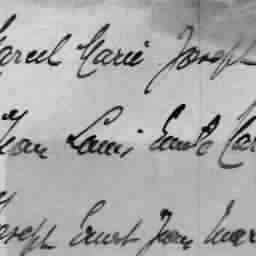 Marcel Marie Joseph
Jean Louis Emile
Joseph Ernest Jean